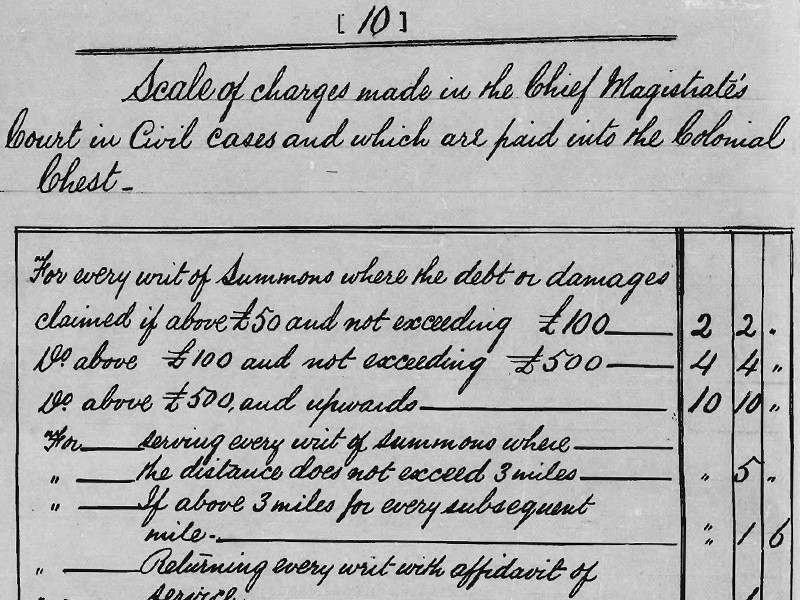 [ 10 ]
Scale of charges made in the Chief Magistrate's
Court in Civil cases and which are paid into the Colonial
Chest -
For every writ of Summons where the debt or damages
claimed if above £50 and not exceeding £100 2 2 "
Do. above £100 and not exceeding £500 4 4 "
Do. above £500, and upwards 10 10 "
For serving every writ of summons where
" the distance does not exceed 3 miles " 5 "
" If above 3 miles for every subsequent
mile - " 1 6
" Returning every writ with affidavit of
service